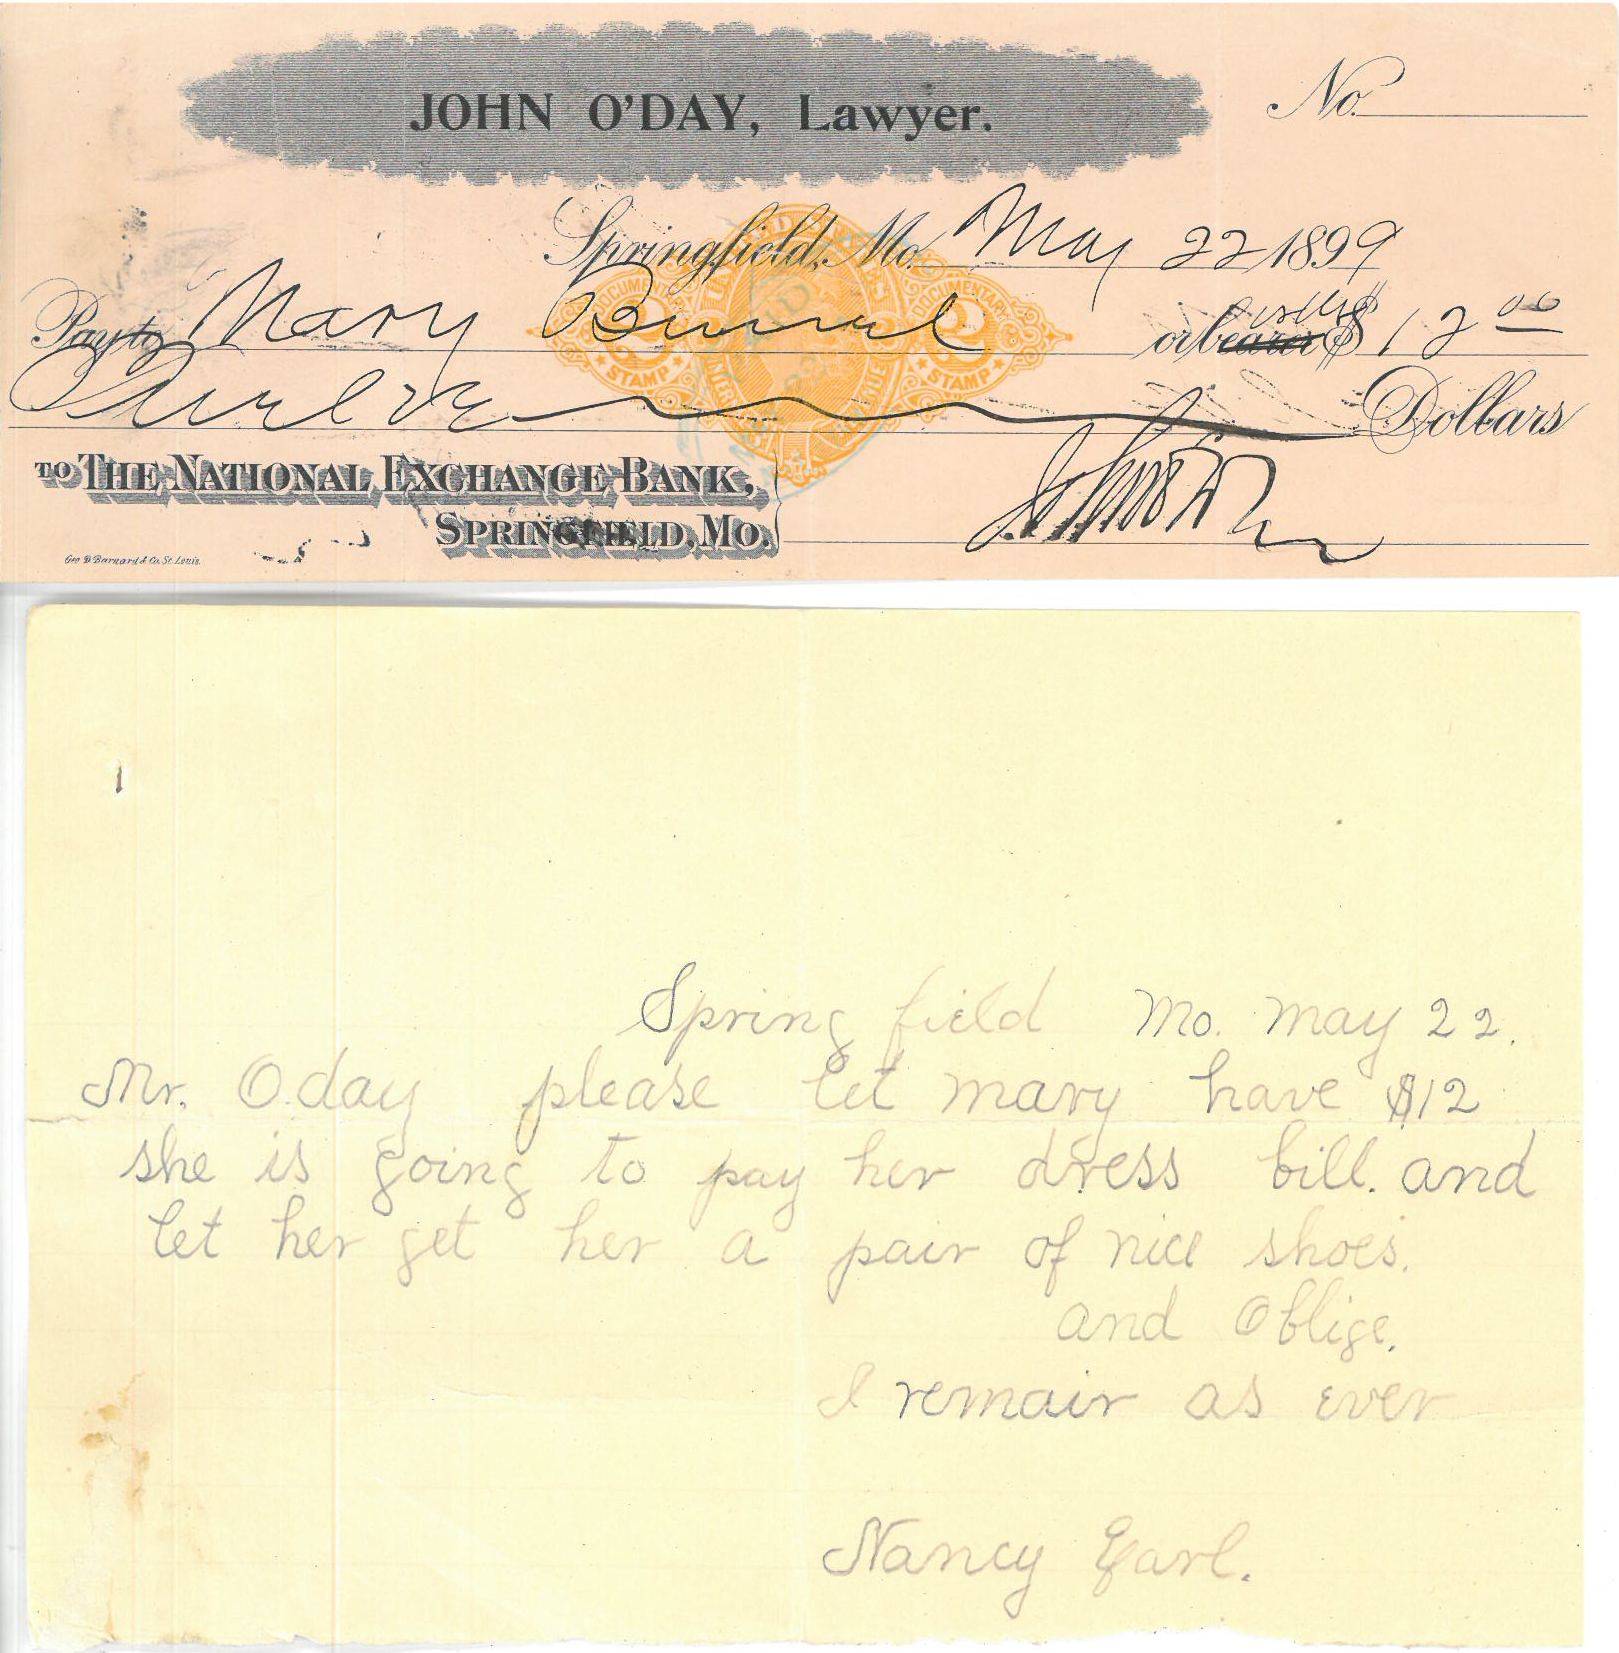 JOHN O'DAY, Lawyer.
No.
Springfield, Mo. May 22 1899
Pay to Mary or bearer order $ 12 00
Twelve Dollars
TO THE NATIONAL EXCHANGE BANK,
SPRINGFIELD, MO.
Geo D Barnard & Co. St. Louis
DOCUMENTARY
2
STAMP
DOCUMENTARY
2
STAMP
Spring field Mo. May 22.
Mr. O.day please let mary have $12
she is going to pay her dress bill. and
let her get her a pair of nice shoes.
and Oblige,
I remain as ever
Nancy Earl.